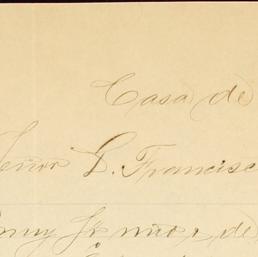 Casa de
Señor L. Francisc
muy Sr mio, de